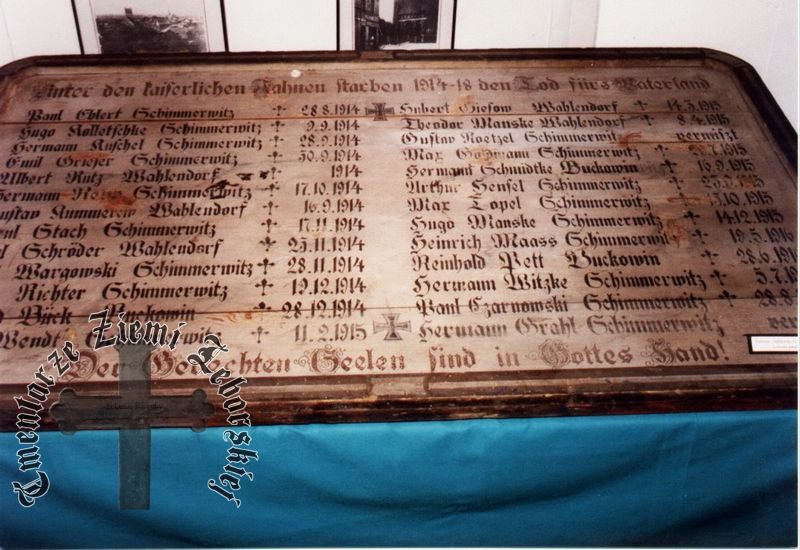 Unter den kaiserlichen Fahnen starben 1914-18 den Tod fürs Vaterland
Paul Ehlert Schimmerwitz 28.8.1914
Hugo Kolletschke Schimmerwitz 9.9.1914
Hermann Kuschel Schimmerwitz 28.9.1914
Emil Grieser Schimmerwitz 30.9.1914
Albert Rutz Wahlendorf 1914
Hermann Schimmerwitz 17.10.1914
Gustav Kummerow Wahlendorf 16.9.1914
Stach Schimmerwitz 17.11.1914
Schröder Wahlendorf 25.11.1914
Wargowski Schimmerwitz 28.11.1914
Richter Schimmerwitz 19.12.1914
Bück Buckowin 28.12.1914
Wendt 11.2.1915
Hubert Giesow Wahlendorf 14.3.1915
Theodor Manske Wahlendorf 8.4.1915
Gustav Noetzel Schimmerwitz vermisst
Max Schimmerwitz 1915
Hermann Schmidtke Buckowin 16.9.1915
Arthur Hensel Schimmerwitz 1915
Max Topel Schimmerwitz 10.1915
Hugo Manske Schimmerwitz 14.12.1915
Heinrich Maass Schimmerwitz 19.5.1916
Reinhold Pett Buckowin 28.6.191
Hermann Witzke Schimmerwitz 5.7.19
Paul Czarnowski Schimmerwitz 28.8
Hermann Grahl Schimmerwitz ver
Der Gerechten Seelen sind in Gottes Hand!
Cmentarze Ziemi Lęborskiej